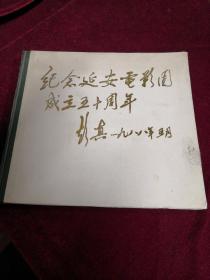 纪念延安电影团
成立五十周年
彭真一九八八年五月